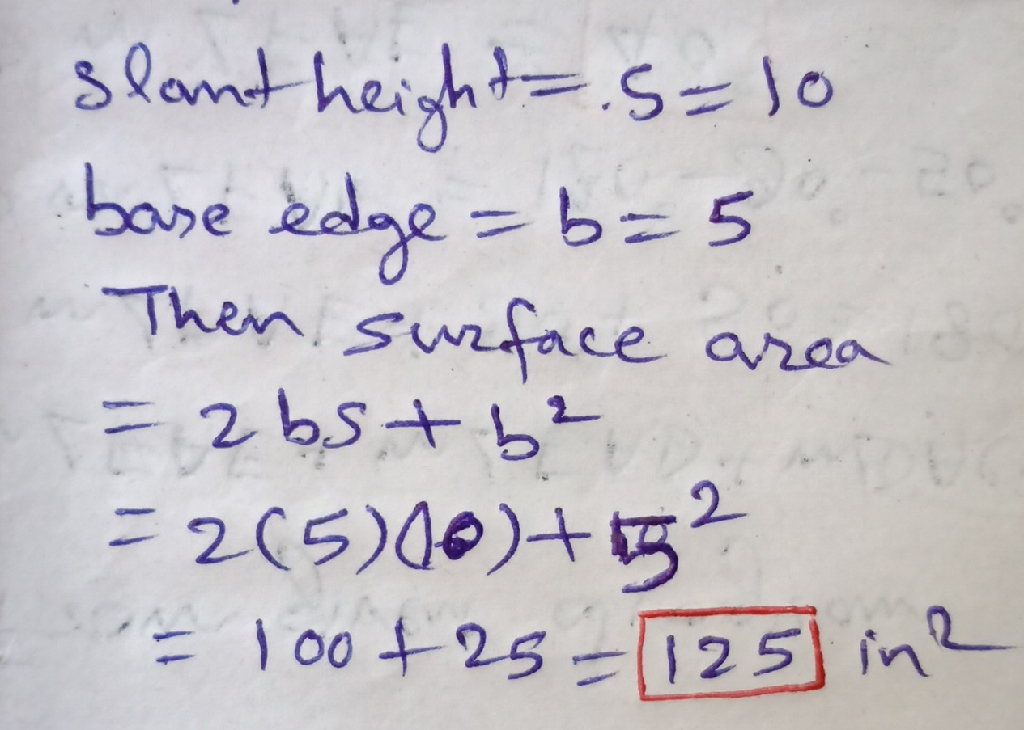 slant height = s = 10
base edge = b = 5
Then surface area
= 2bs + b²
= 2(5)(10) + 5²
= 100 + 25 = 125 in²